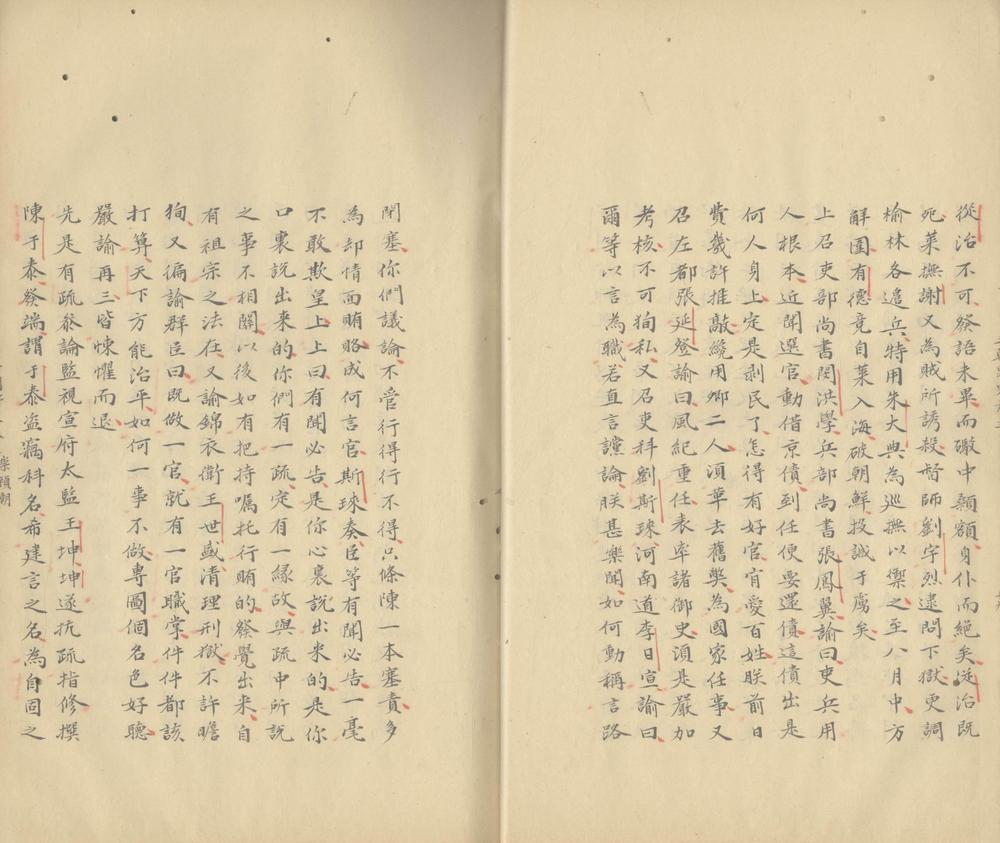 從治不可發語未畢而礮中頼額身仆而絕矣從治既
死萊撫謝又為賊所誘殺督師劉宇烈逮問下獄更調
榆林各邊兵特用朱大典為巡撫以禦之至八月中方
觧圍有德竟自萊入海破朝鮮投誠于虜矣
上召吏部尚書閔洪學兵部尚書張鳳翼諭曰吏兵用
人根本近聞選官動借京債到任便要還債這債出是
何人身上定是剥民了怎得有好官肎愛百姓朕前日
費幾許推敲纔用卿二人湏革去舊弊為國家任事又
召左都張延登諭曰風紀重任表率諸御史湏是嚴加
考核不可狥私又召吏科劉斯琜河南道李日宣諭曰
爾等以言為職若直言讜論朕甚樂聞如何動稱言路
閉塞你們議論不管行得行不得只條陳一本塞責多
為却情面賄賂成何言官斯琜奏臣等有聞必告一毫
不敢欺皇上上曰有聞必告是你心裏說出来的是你
口裏說出来的你們有一疏定有一緣故與疏中所説
之事不相關以後如有把持嘱托行賄的發覺出来自
有祖宗之法在又諭錦衣衛王世盛清理刑獄不許瞻
狥又徧諭群臣曰既做一官就有一官職掌件件都該
打算天下方能治平如何一事不做專圖個名色好聽
嚴諭再三皆悚懼而退
先是有疏叅論監視宣府太監王坤坤遂抗疏指修撰
陳于泰發端謂于泰盜竊科名希建言之名為自固之
崇禎朝